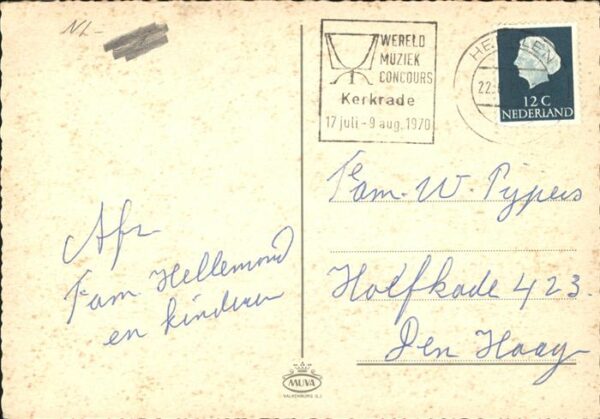 NL-
WERELD
MUZIEK
CONCOURS
Kerkrade
17 juli - 9 aug. 1970
HEERLEN
22.
12 C
NEDERLAND
Fam. W. Pijpers
Hoefkade 423.
Den Haag
Afz
Fam Hellemond
en kinderen
MUVA
VALKENBURG (L.)